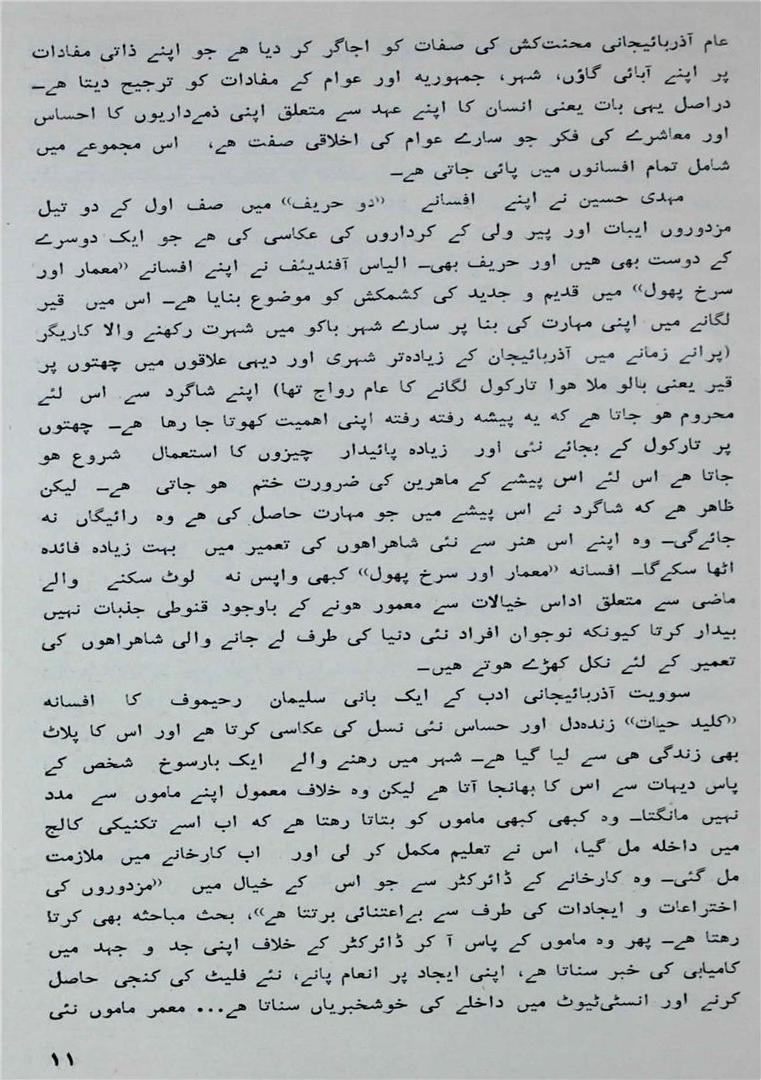 عام آذربائیجانی محنت‌کش کی صفات کو اجاگر کر دیا ھے جو اپنے ذاتی مفادات
پر اپنے آبائی گاؤں، شہر، جمہوریہ اور عوام کے مفادات کو ترجیح دیتا ھے۔
دراصل یہی بات یعنی انسان کا اپنے عہد سے متعلق اپنی ذمےداریوں کا احساس
اور معاشرے کی فکر جو سارے عوام کی اخلاقی صفت ھے، اس مجموعے میں
شامل تمام افسانوں میں پائی جاتی ھے۔
مہدی حسین نے اپنے افسانے ”دو حریف“ میں صف اول کے دو تیل
مزدوروں ایبات اور پیر ولی کے کرداروں کی عکاسی کی ھے جو ایک دوسرے
کے دوست بھی ھیں اور حریف بھی۔ الیاس آفندیئف نے اپنے افسانے ”معمار اور
سرخ پھول“ میں قدیم و جدید کی کشمکش کو موضوع بنایا ھے۔ اس میں قیر
لگانے میں اپنی مہارت کی بنا پر سارے شہر باکو میں شہرت رکھنے والا کاریگر
(پرانے زمانے میں آذربائیجان کے زیادہ‌تر شہری اور دیہی علاقوں میں چھتوں پر
قیر یعنی بالو ملا ھوا تارکول لگانے کا عام رواج تھا) اپنے شاگرد سے اس لئے
محروم ھو جاتا ھے کہ یہ پیشہ رفتہ رفتہ اپنی اھمیت کھوتا جا رھا ھے۔ چھتوں
پر تارکول کے بجائے نئی اور زیادہ پائیدار چیزوں کا استعمال شروع ھو
جاتا ھے اس لئے اس پیشے کے ماھرین کی ضرورت ختم ھو جاتی ھے۔ لیکن
ظاھر ھے کہ شاگرد نے اس پیشے میں جو مہارت حاصل کی ھے وہ رائیگاں نہ
جائےگی۔ وہ اپنے اس ھنر سے نئی شاھراھوں کی تعمیر میں بہت زیادہ فائدہ
اٹھا سکےگا۔ افسانہ ”معمار اور سرخ پھول“ کبھی واپس نہ لوٹ سکنے والے
ماضی سے متعلق اداس خیالات سے معمور ھونے کے باوجود قنوطی جذبات نہیں
بیدار کرتا کیونکہ نوجوان افراد نئی دنیا کی طرف لے جانے والی شاھراھوں کی
تعمیر کے لئے نکل کھڑے ھوتے ھیں۔
سوویت آذربائیجانی ادب کے ایک بانی سلیمان رحیموف کا افسانہ
”کلید حیات“ زندہ‌دل اور حساس نئی نسل کی عکاسی کرتا ھے اور اس کا پلاٹ
بھی زندگی ھی سے لیا گیا ھے۔ شہر میں رھنے والے ایک بارسوخ شخص کے
پاس دیہات سے اس کا بھانجا آتا ھے لیکن وہ خلاف معمول اپنے ماموں سے مدد
نہیں مانگتا۔ وہ کبھی کبھی ماموں کو بتاتا رھتا ھے کہ اب اسے تکنیکی کالج
میں داخلہ مل گیا، اس نے تعلیم مکمل کر لی اور اب کارخانے میں ملازمت
مل گئی۔ وہ کارخانے کے ڈائرکٹر سے جو اس کے خیال میں ”مزدوروں کی
اختراعات و ایجادات کی طرف سے بےاعتنائی برتتا ھے“، بحث مباحثہ بھی کرتا
رھتا ھے۔ پھر وہ ماموں کے پاس آ کر ڈائرکٹر کے خلاف اپنی جد و جہد میں
کامیابی کی خبر سناتا ھے، اپنی ایجاد پر انعام پانے، نئے فلیٹ کی کنجی حاصل
کرنے اور انسٹی‌ٹیوٹ میں داخلے کی خوشخبریاں سناتا ھے... معمر ماموں نئی
۱۱